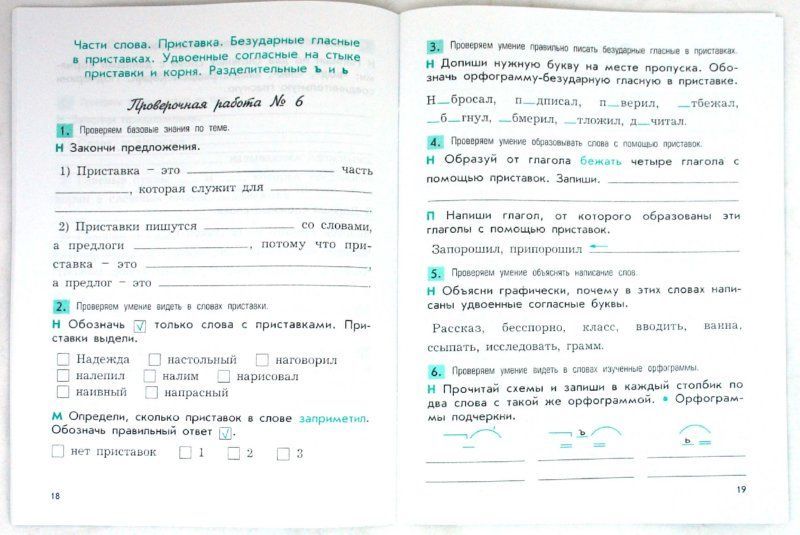 Части слова. Приставка. Безударные гласные
в приставках. Удвоенные согласные на стыке
приставки и корня. Разделительные ъ и ь
Проверочная работа № 6
1. Проверяем базовые знания по теме.
Н Закончи предложения.
1) Приставка – это ____________ часть
____________, которая служит для ____________
____________.
2) Приставки пишутся ____________ со словами,
а предлоги ____________, потому что при-
ставка – это ____________,
а предлог – это ____________.
2. Проверяем умение видеть в словах приставки.
Н Обозначь √ только слова с приставками. При-
ставки выдели.
☐ Надежда ☐ настольный ☐ наговорил
☐ налепил ☐ налим ☐ нарисовал
☐ наивный ☐ напрасный
М Определи, сколько приставок в слове заприметил.
Обозначь правильный ответ √.
☐ нет приставок ☐ 1 ☐ 2 ☐ 3
18
3. Проверяем умение правильно писать безударные гласные в приставках.
Н Допиши нужную букву на месте пропуска. Обо-
значь орфограмму-безударную гласную в приставке.
Н__бросал, п__дписал, п__верил, __тбежал,
__б__гнул, __бмерил, __тложил, д__читал.
4. Проверяем умение образовывать слова с помощью приставок.
Н Образуй от глагола бежать четыре глагола с
помощью приставок. Запиши. ____________
____________
П Напиши глагол, от которого образованы эти
глаголы с помощью приставок.
Запорошил, припорошил ← ____________
5. Проверяем умение объяснять написание слов.
Н Объясни графически, почему в этих словах напи-
саны удвоенные согласные буквы.
Рассказ, бесспорно, класс, вводить, ванна,
ссыпать, исследовать, грамм.
6. Проверяем умение видеть в словах изученные орфограммы.
Н Прочитай схемы и запиши в каждый столбик по
два слова с такой же орфограммой. • Орфограм-
мы подчеркни.
ъ ь
19